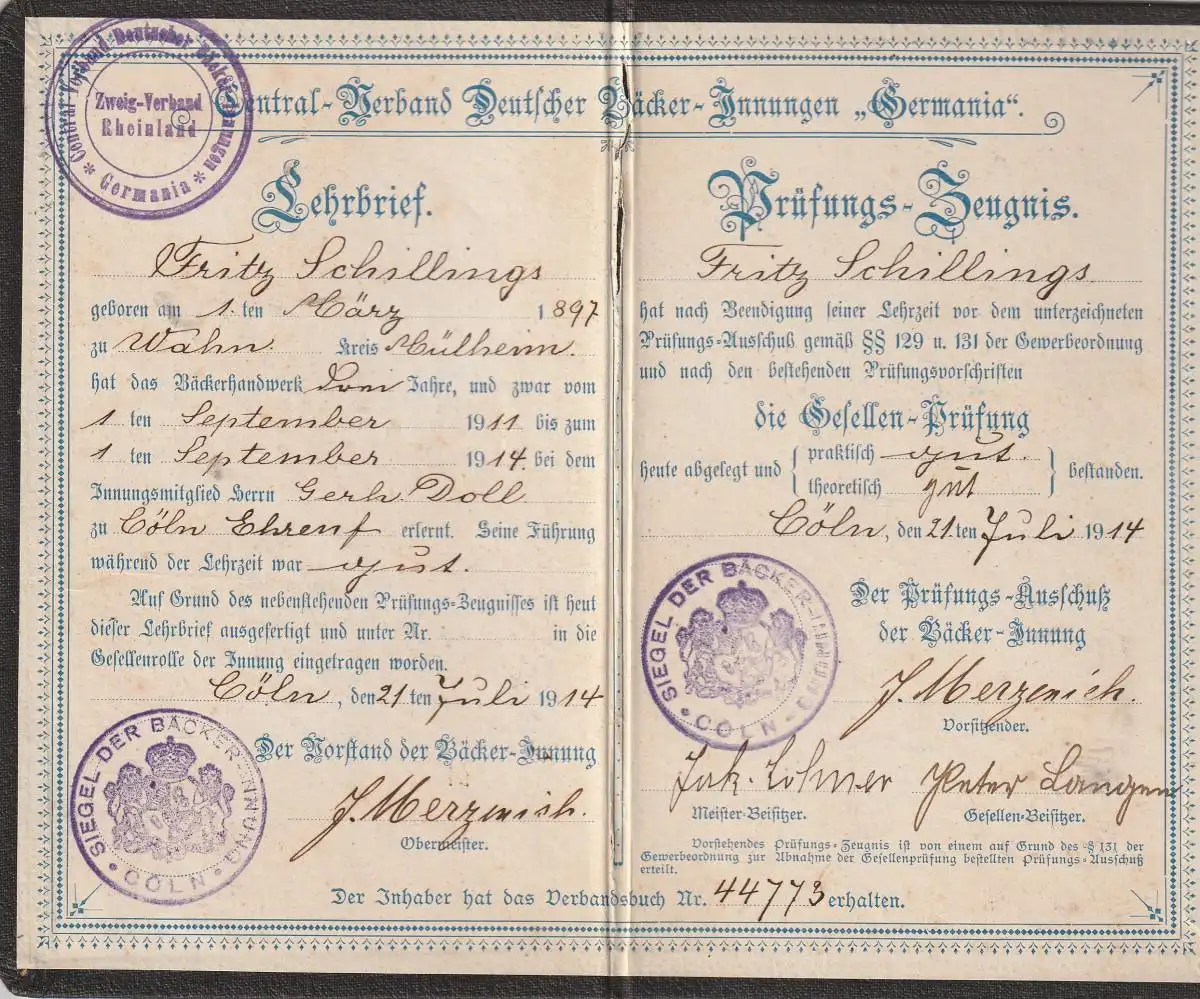 Central Verband Deutscher Bäcker-Innungen
Zweig-Verband
Rheinland
* Germania *
Central-Verband Deutscher Bäcker-Innungen „Germania“.
Lehrbrief.
Fritz Schillings
geboren am 1. ten März 1897
zu Wahn Kreis Mülheim.
hat das Bäckerhandwerk drei Jahre, und zwar vom
1 ten September 1911 bis zum
1 ten September 1914. bei dem
Innungsmitglied Herrn Gerh Doll
zu Cöln Ehrenf erlernt. Seine Führung
während der Lehrzeit war gut.
Auf Grund des nebenstehenden Prüfungs-Zeugnisses ist heut
dieser Lehrbrief ausgefertigt und unter Nr. in die
Gesellenrolle der Innung eingetragen worden.
Cöln, den 21 ten Juli 1914
Der Vorstand der Bäcker-Innung
J. Merzenich.
Obermeister.
SIEGEL DER BÄCKER-INNUNG
• CÖLN •
Prüfungs-Zeugnis.
Fritz Schillings
hat nach Beendigung seiner Lehrzeit vor dem unterzeichneten
Prüfungs-Ausschuß gemäß §§ 129 u. 131 der Gewerbeordnung
und nach den bestehenden Prüfungsvorschriften
die Gesellen-Prüfung
heute abgelegt und { praktisch gut. } bestanden.
theoretisch gut
Cöln, den 21. ten Juli 1914
Der Prüfungs-Ausschuß
der Bäcker-Innung
SIEGEL DER BÄCKER-INNUNG
• CÖLN •
J. Merzenich.
Vorsitzender.
Jak. Lohmer Peter Langen
Meister-Beisitzer. Gesellen-Beisitzer.
Vorstehendes Prüfungs-Zeugnis ist von einem auf Grund des § 131 der
Gewerbeordnung zur Abnahme der Gesellenprüfung bestellten Prüfungs-Ausschuß
erteilt.
Der Inhaber hat das Verbandsbuch Nr. 44773 erhalten.